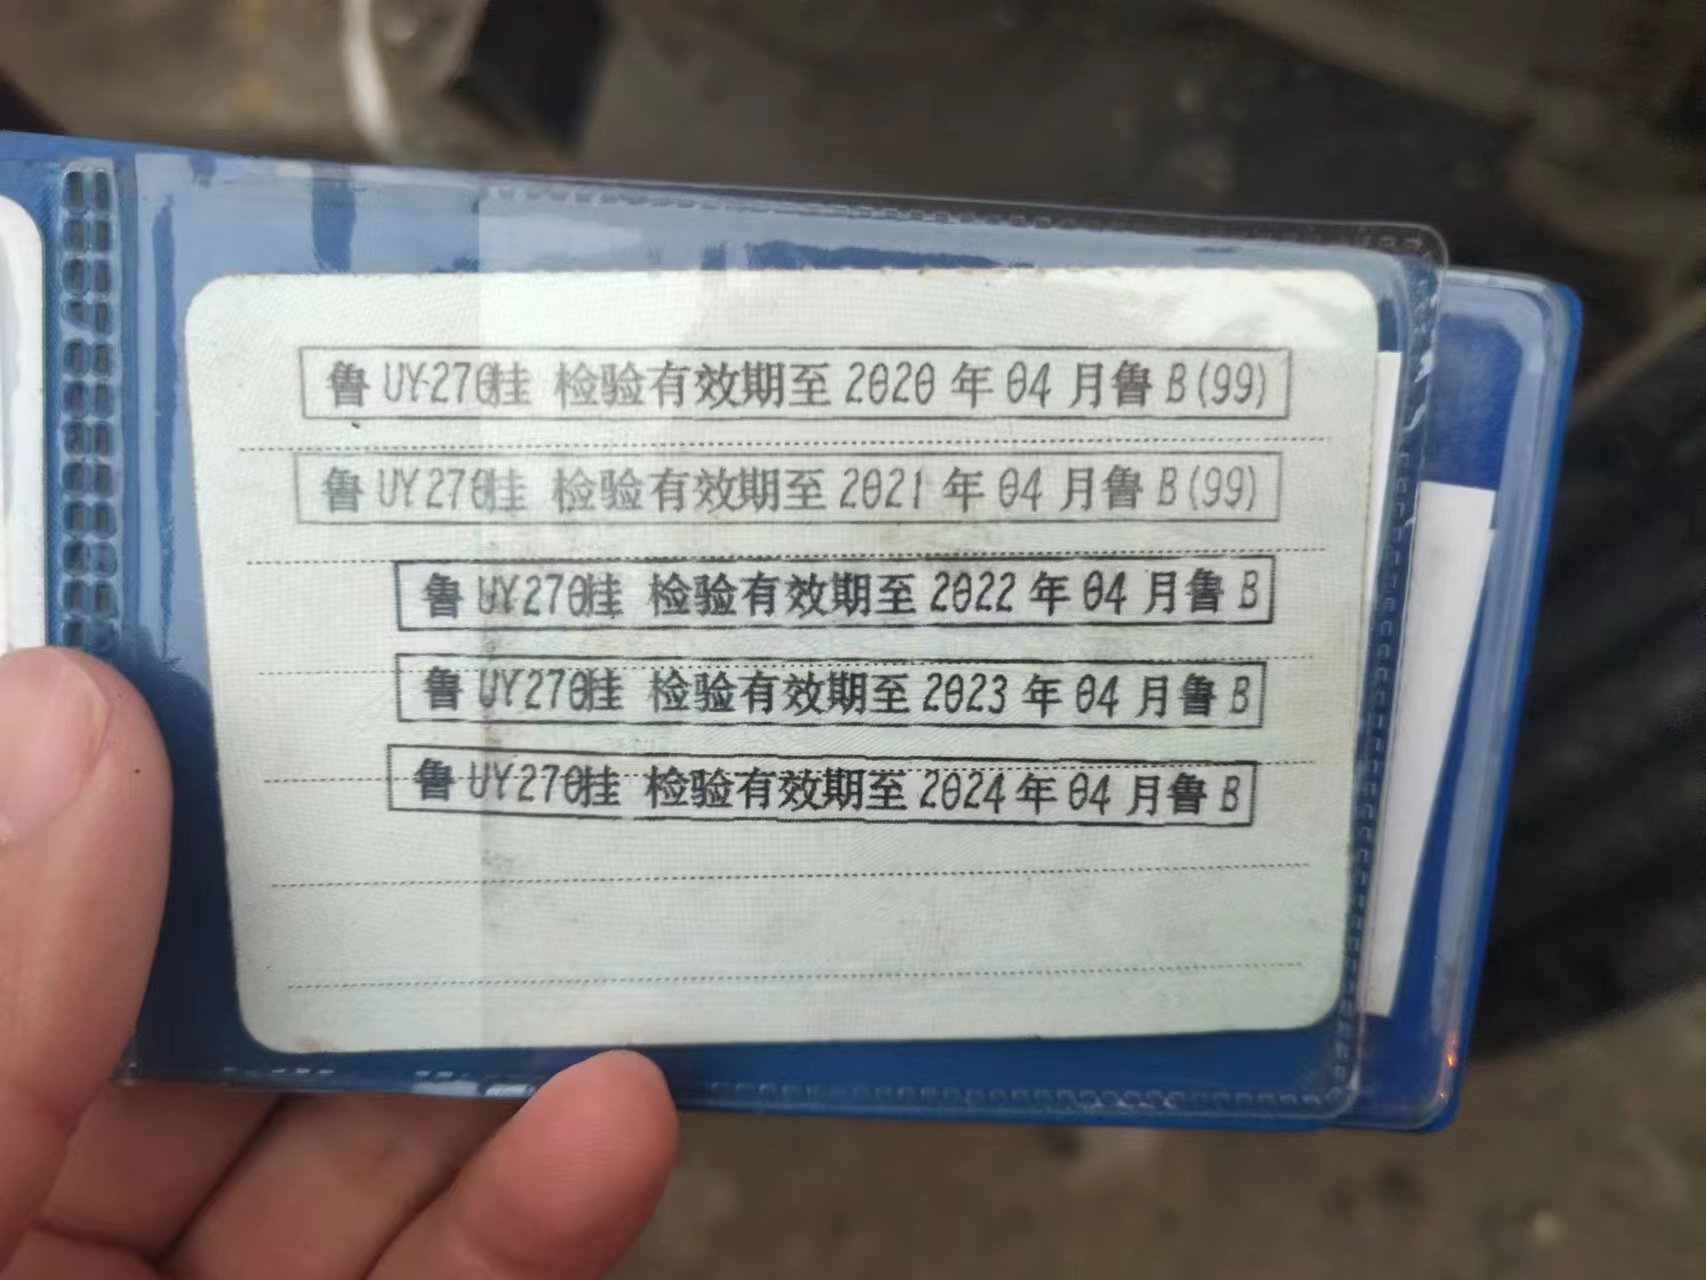 鲁 UY270挂 检验有效期至 2020 年 04 月鲁 B(99)
鲁 UY270挂 检验有效期至 2021 年 04 月鲁 B(99)
鲁 UY270挂 检验有效期至 2022 年 04 月鲁 B
鲁 UY270挂 检验有效期至 2023 年 04 月鲁 B
鲁 UY270挂 检验有效期至 2024 年 04 月鲁 B